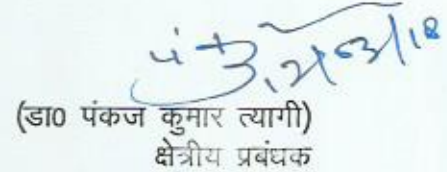 12/03/18
(डा0 पंकज कुमार त्यागी)
क्षेत्रीय प्रबंधक